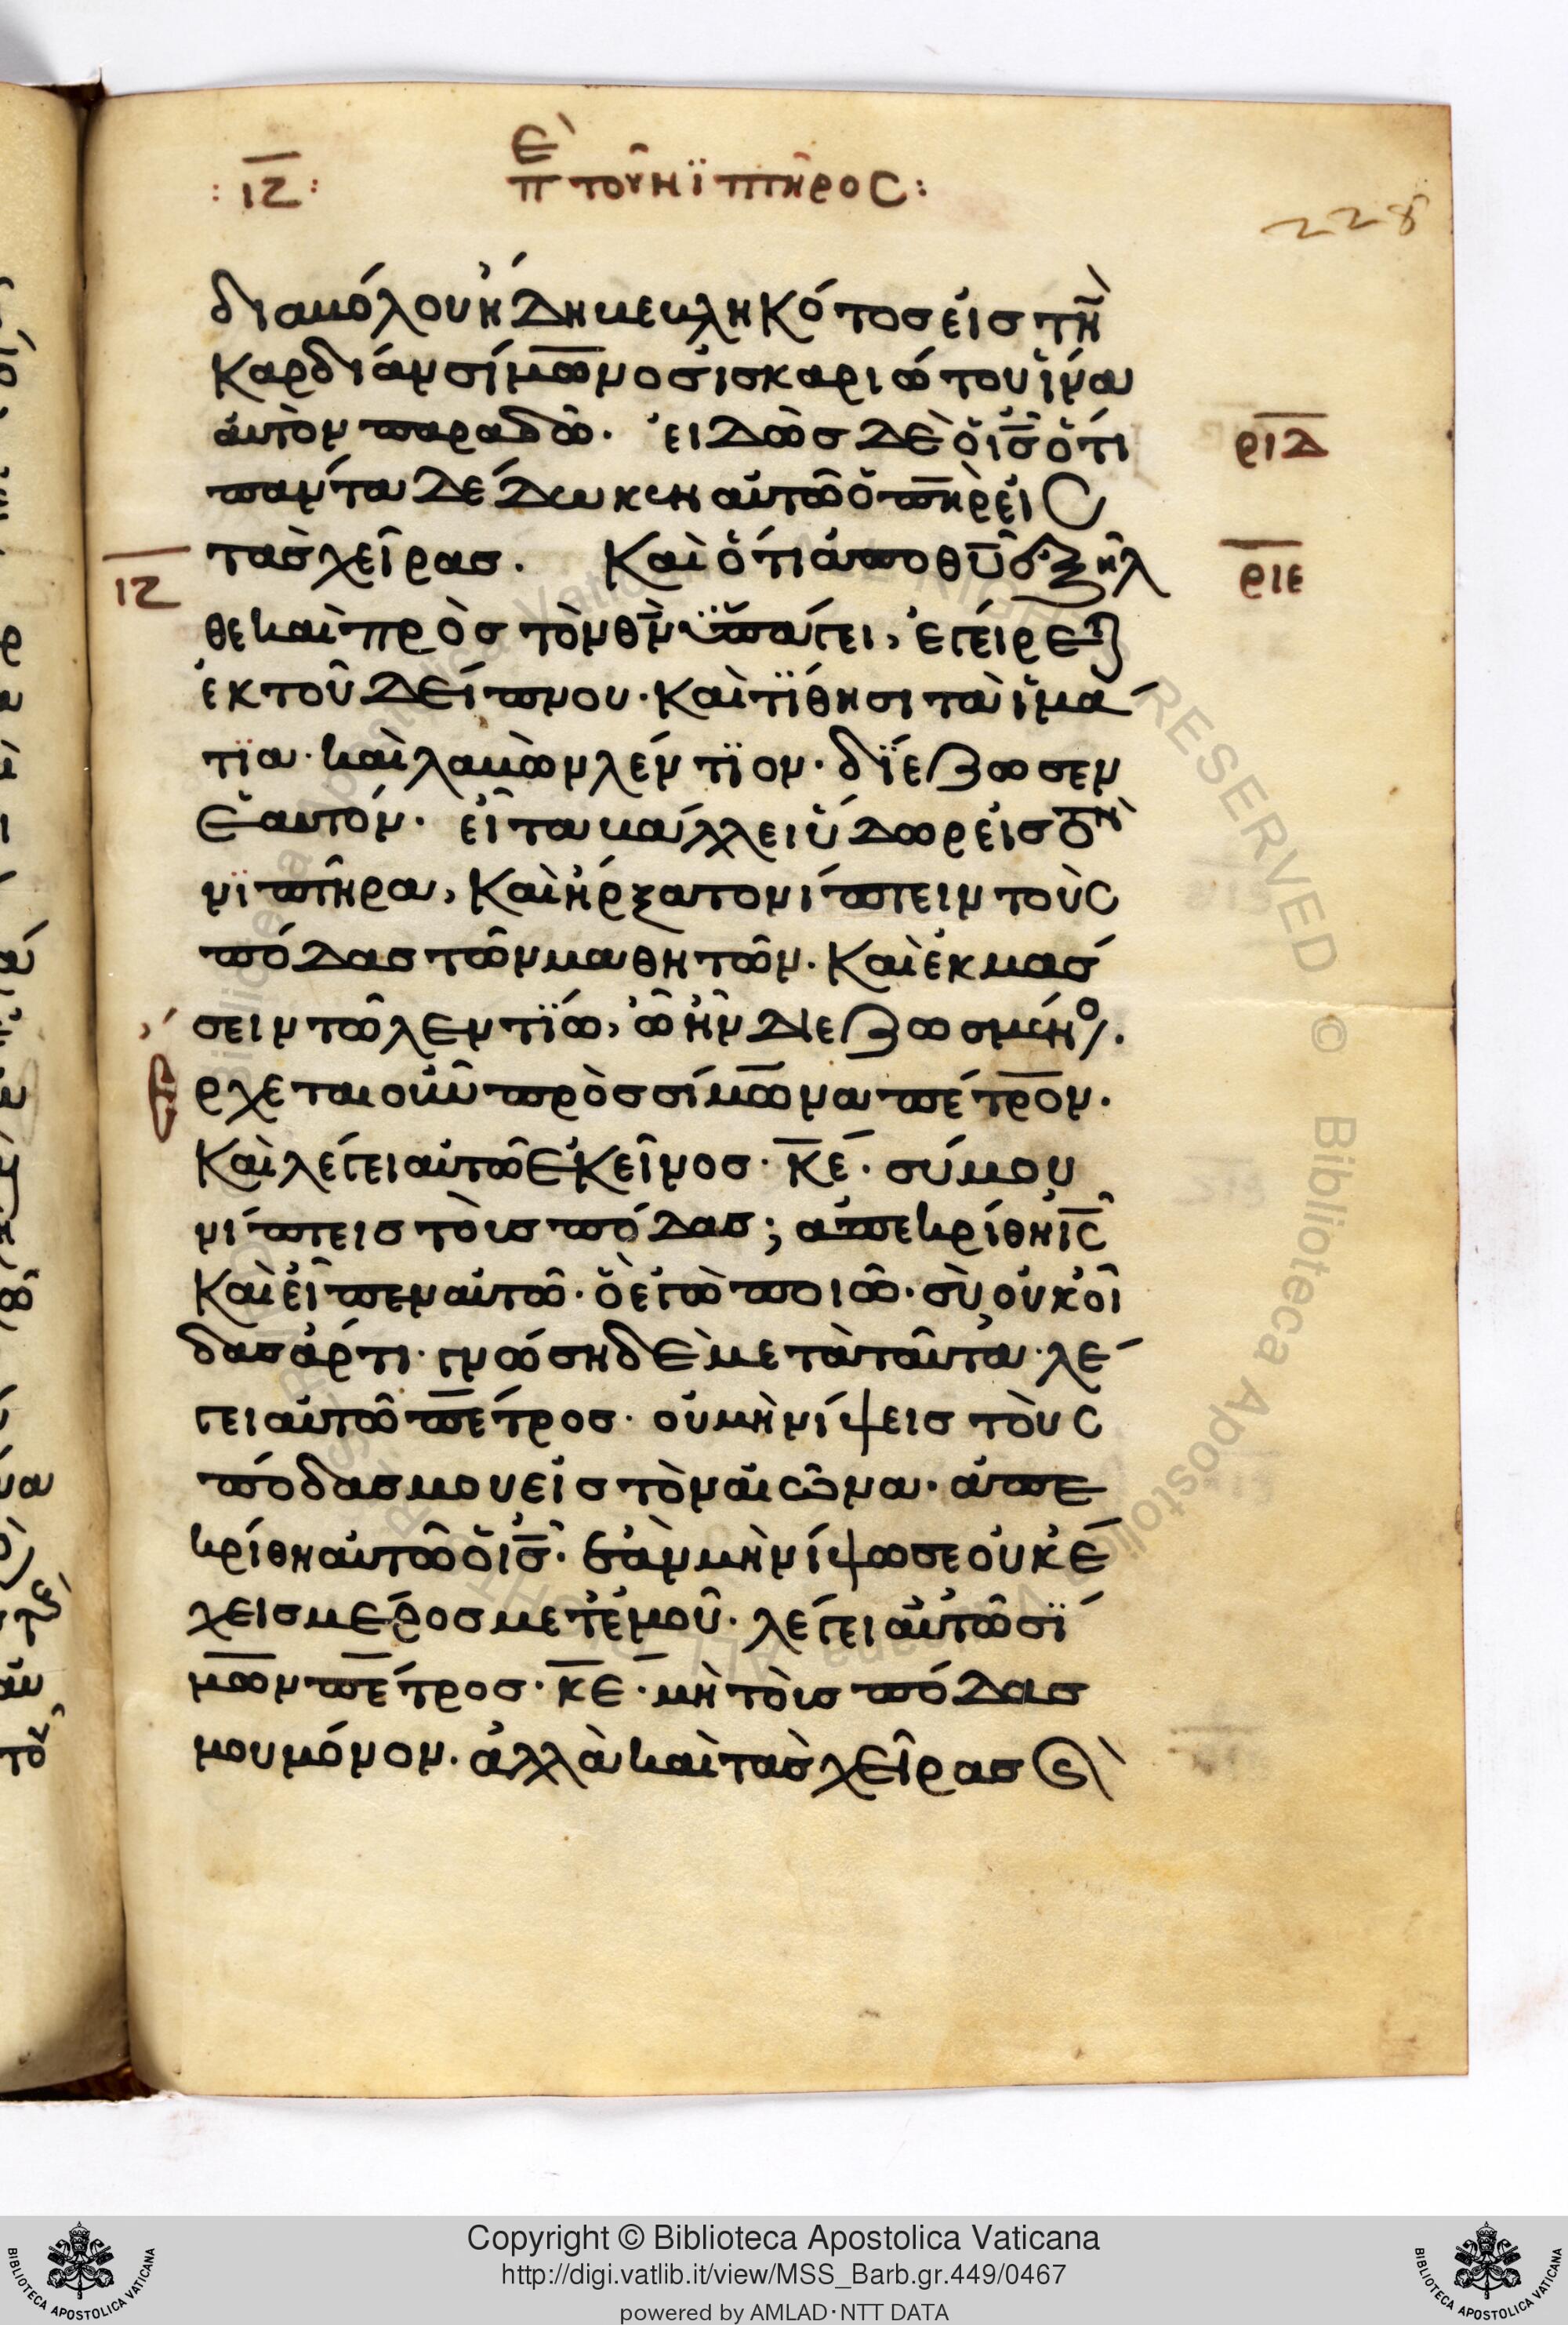 : ΙΖ : ΠῈ ΤΟΥ͂ ΝΪΠΤΗ͂ΡΟC :
228
διαβόλου ἤδη βεβληκότος εἰς τὴν
καρδίαν σίμωνος ἰσκαριώτου ἵνα
αὐτὸν παραδῶ. εἰδὼς δὲ ὁ ις ὅτι
ΡΙΔ
πάντα δέδωκεν αὐτῶ ὁ πηρ εἰς
τὰς χεῖρας. καὶ ὅτι ἀπὸ θυ ἐξῆλ
ΡΙΕ
ΙΖ
θε καὶ πρὸς τὸν θν ὑπάγει, ἐγείρεται
ἐκ τοῦ δείπνου. καὶ τίθησι τὰ ἱμά
τϊα. καὶ λαβὼν λέντϊον. δϊέζωσεν
ἑαυτόν. εἶτα βάλλει ὕδωρ εἰς τὸν
νιπτῆρα, καὶ ἤρξατο νίπτειν τοὺς
πόδας τῶν μαθητῶν. καὶ ἐκμάσ
σειν τῶ λεντϊω, ὧ ἦν δεζωσμένος.
Ε
ρχεται οὖν πρὸς σίμωνα πέτρον.
καὶ λέγει αὐτῶ ἐκεῖνος. κε. σύ μου
νίπτεις τοὺς πόδας; ἀπεκρίθη ις
καὶ εἶπεν αὐτῶ. ὃ ἐγὼ ποιῶ. σὺ οὐκ οἶ
δας ἄρτι. γνώση δὲ μετὰ ταῦτα. λέ
γει αὐτῶ πέτρος. οὐ μὴ νίψεις τοὺς
πόδας μου εἰς τὸν αἰῶνα. ἀπε
κρίθη αὐτῶ ὁ ις. ἐὰν μὴ νίψω σε οὐκ ἔ
χεις μέρος μετ ἐμοῦ. λέγει αὐτῶ σϊ
μων πέτρος. κε. μὴ τοὺς πόδας
μου μόνον. ἀλλὰ καὶ τὰς χεῖρας καὶ
Copyright © Biblioteca Apostolica Vaticana
http://digi.vatlib.it/view/MSS_Barb.gr.449/0467
powered by AMLAD·NTT DATA
BIBLIOTECA APOSTOLICA VATICANA
BIBLIOTECA APOSTOLICA VATICANA